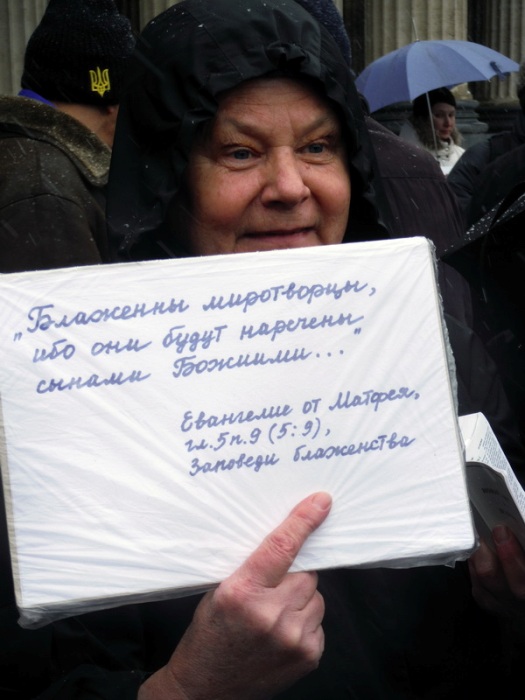 „Блаженны миротворцы,
ибо они будут наречены
сынами Божиими..."
Евангелие от Матфея,
гл.5 п.9 (5:9),
Заповеди блаженства